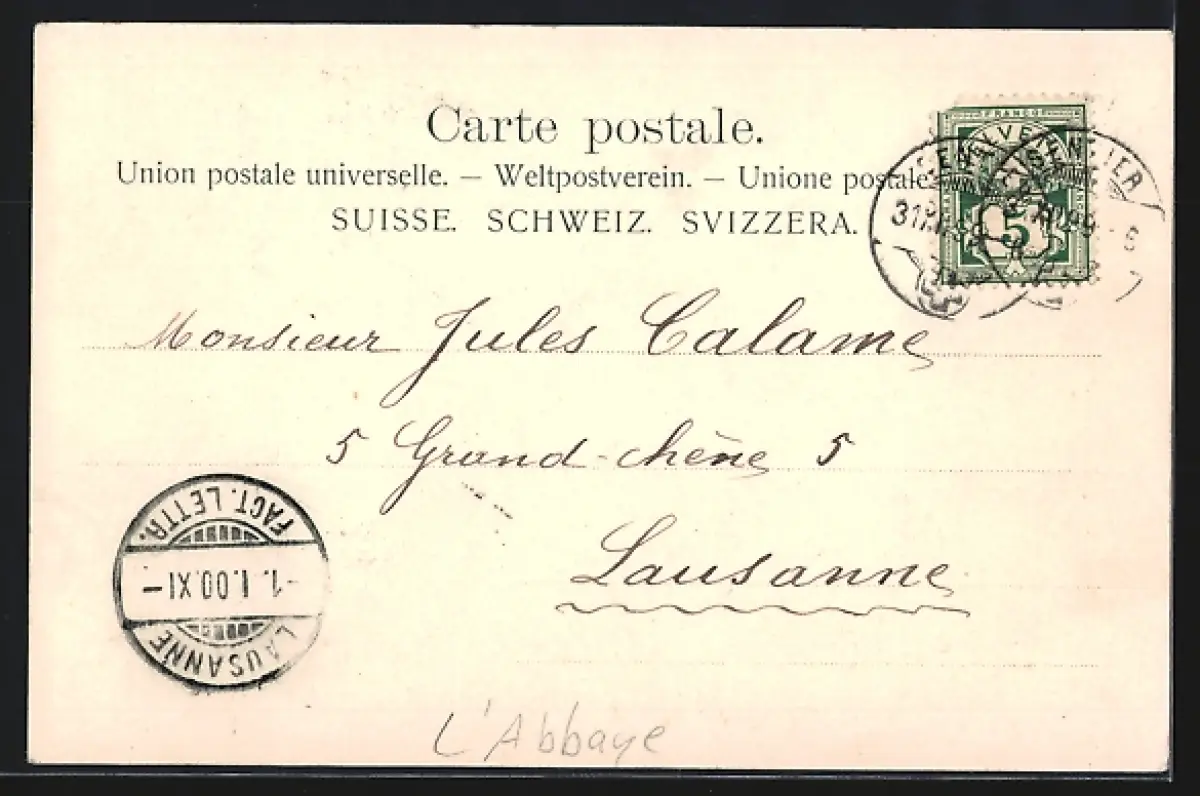 Carte postale.
Union postale universelle. — Weltpostverein. — Unione postale
SUISSE. SCHWEIZ. SVIZZERA.
FRANCO
HELVETIA
5
Monsieur Jules Calame
5 Grand-chêne 5
Lausanne
LAUSANNE
-1.I.00.XI-
FACT. LETTR.
L'Abbaye